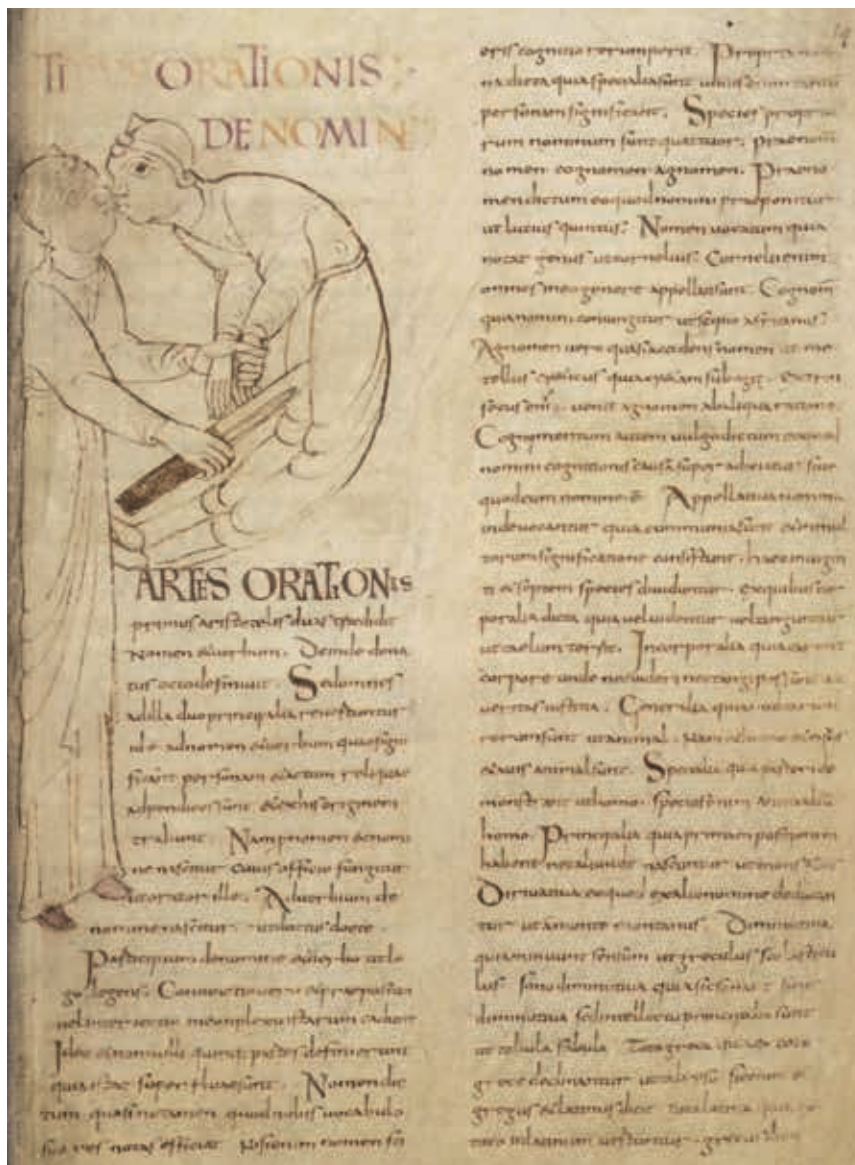 TI ORATIONIS
DE NOMIN
ARTES ORATIONIS
primus aristotelis duas tradidit
Nomen et uerbum. Deinde dona
tus octo definiuit. Sed omnes
ad illa duo principalia reuertuntur
id e ad nomen et uerbum quae signi
ficant personam et actum reliquae
adpendices sunt et ex his originem
trahunt. Nam pronomen a nomi
ne nascitur cuius officio fungitur
ut orator ille. Aduerbium de
nomine nascitur ut doctus docte.
Participium de nomine et uerbo ut le
go legens. Coniunctio uero et praepositio
uel interiectio in conplexu istarum cadent
Ideo et nonnulli quinque partes definierunt
quia istae superfluae sunt. Nomen dic
tum quasi notamen quod nobis uocabulo
suo res notas efficiat. Nisi enim nomen sci
eris cognitio rerum perit. Propria no
na dicta quia specialia sunt unius enim tantum
personam significant. Species propri
rum nominum sunt quattuor. praenom
nomen cognomen agnomen. Praeno
men dictum eo quod nomini praeponitur
ut lucius quintus. Nomen uocatum quia
notat genus ut cornelius. Cornelii enim
omnes in eo genere appellati sunt. Cognom
quia nomini coniungitur ut scipio africanus.
Agnomen uero quasi accidens nomen ut me
tellus creticus quia cretam subegit. extrin
secus enim uenit agnomen ab aliqua ratione
Cognomentum autem uulgo dictum eo quod
nomini cognitionis causa superadicitur siue
quod cum nomine e. Appellatiua nomina
inde uocantur quia communia sunt et in mul
torum significatione consistunt. haec in uigin
ti et septem species diuiduntur. ex quibus cor
poralia dicta quia uel uidentur uel tanguntur
ut caelum terra. Incorporalia quia carent
corpore unde nec uideri nec tangi possunt ut
ueritas iustitia. Generalia quia multarum
rerum sunt ut animal. Nam et homo et equus
et auis animal sunt. Specialia quia partem de
monstrant ut homo. species enim animalium
homo. Principalia quia primam positionem
habent nec aliunde nascuntur ut mons
Diriuatiua eo quod ex alio nomine deducan
tur ut a monte montanus. Diminutiua
quia minuunt sensum ut greculus scolasticu
lus. sono diminutiua quia sic sonant ut sunt
diminutiua sed intellectu principalia sunt
ut tabula fabula. Tota greca
grece declinantur ut calisto siue enim
grecus et latinus dicit. Tota latina quia
toto in latinum uertuntur. grecus